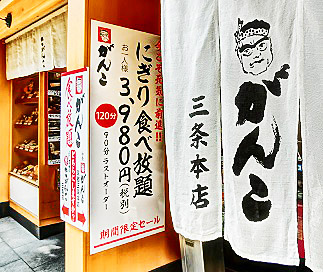 がんこ
にぎり食べ放題
お一人様
3,980円(税別)
120分
90分ラストオーダー
期間限定セール
がんこ
三条本店
がんこ
食べ放題